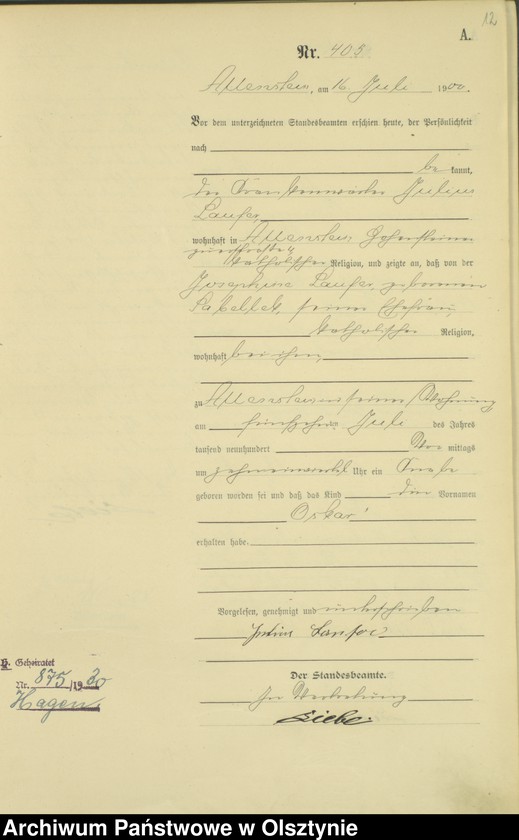 12
A.
Nr. 405
Allenstein, am 16 Juli 1900.
Vor dem unterzeichneten Standesbeamten erschien heute, der Persönlichkeit
nach
be kannt,
der Krankenwärter Julius
Laufer,
wohnhaft in Allenstein Hohensteiner
katholischer Religion, und zeigte an, daß von der
Josephine Laufer, geborenen
seiner Ehefrau,
katholischer Religion,
wohnhaft bei ihm,
zu Allenstein in seiner Wohnung
am fünfzehn Juli des Jahres
tausend neunhundert Vor mittags
um Uhr ein Knabe
geboren worden sei und daß das Kind den Vornamen
Oskar
erhalten habe.
Vorgelesen, genehmigt und unterschrieben
Julius
Der Standesbeamte.
In Vertretung
Liebe.
Geheiratet
Nr. 875/1930
Hagen
Archiwum Państwowe w Olsztynie